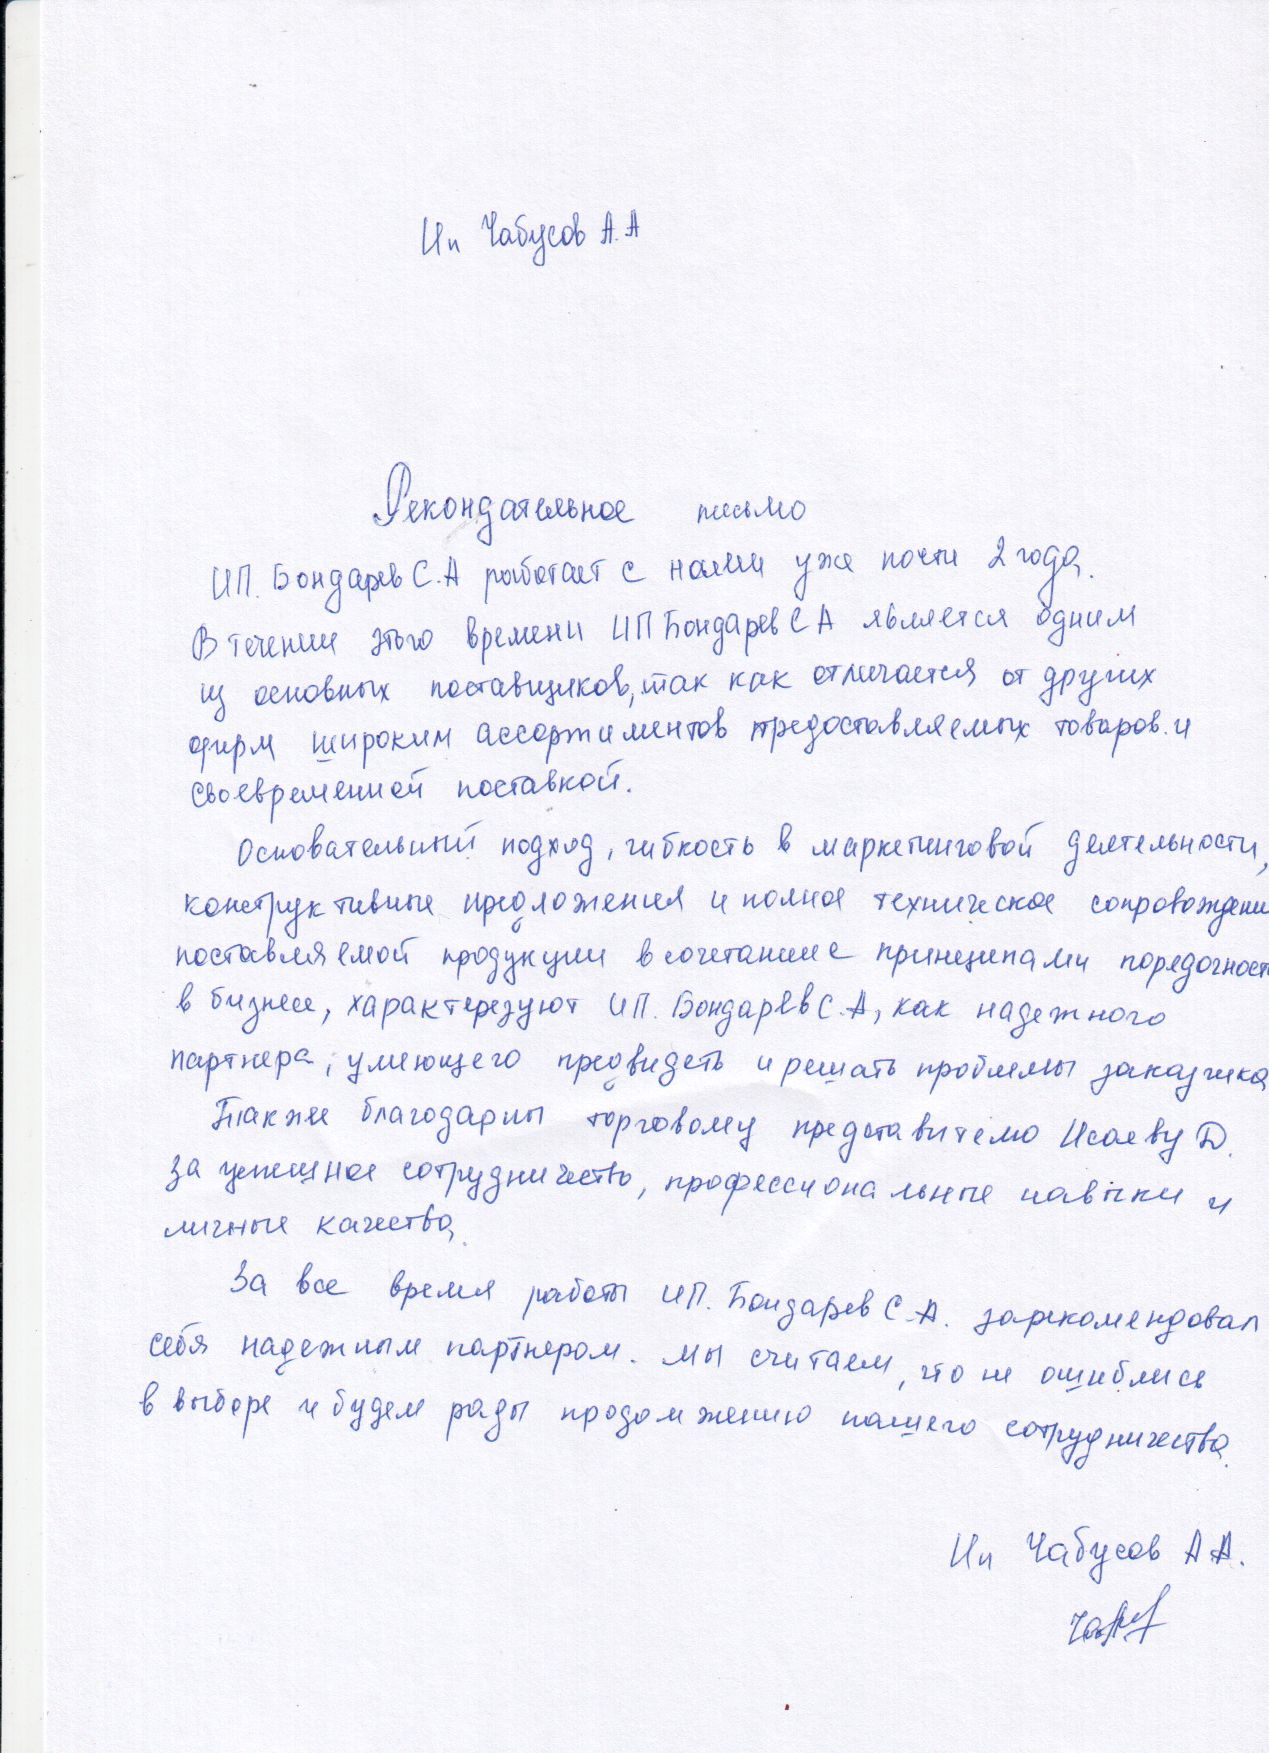 Ип Чабусов А.А
Рекондательное письмо
ИП. Бондарев С.А работает с нами уже почти 2 года.
В течении этого времени ИП Бондарев С А является одним
из основных поставщиков, так как отличается от других
фирм широким ассортиментов предоставляемых товаров. и
своевременной поставкой.
Основательный подход, гибкость в маркетинговой деятельности,
конструктивные предложения и полное техническое сопровождени
поставляемой продукции в сочетание с принципами порядочност
в бизнесе, характеризуют ИП. Бондарев С.А, как надежного
партнера, умеющего предвидеть и решать проблемы заказчика
Также благодарны торговому представителю Исаеву Д.
за успешное сотрудничество, профессиональные навыки и
личные качества.
За все время работы ИП. Бондарев С.А. зарекомендовал
себя надежным партнером. Мы считаем, что не ошиблись
в выборе и будем рады продолжению нашего сотрудничества.
Ип Чабусов А А.